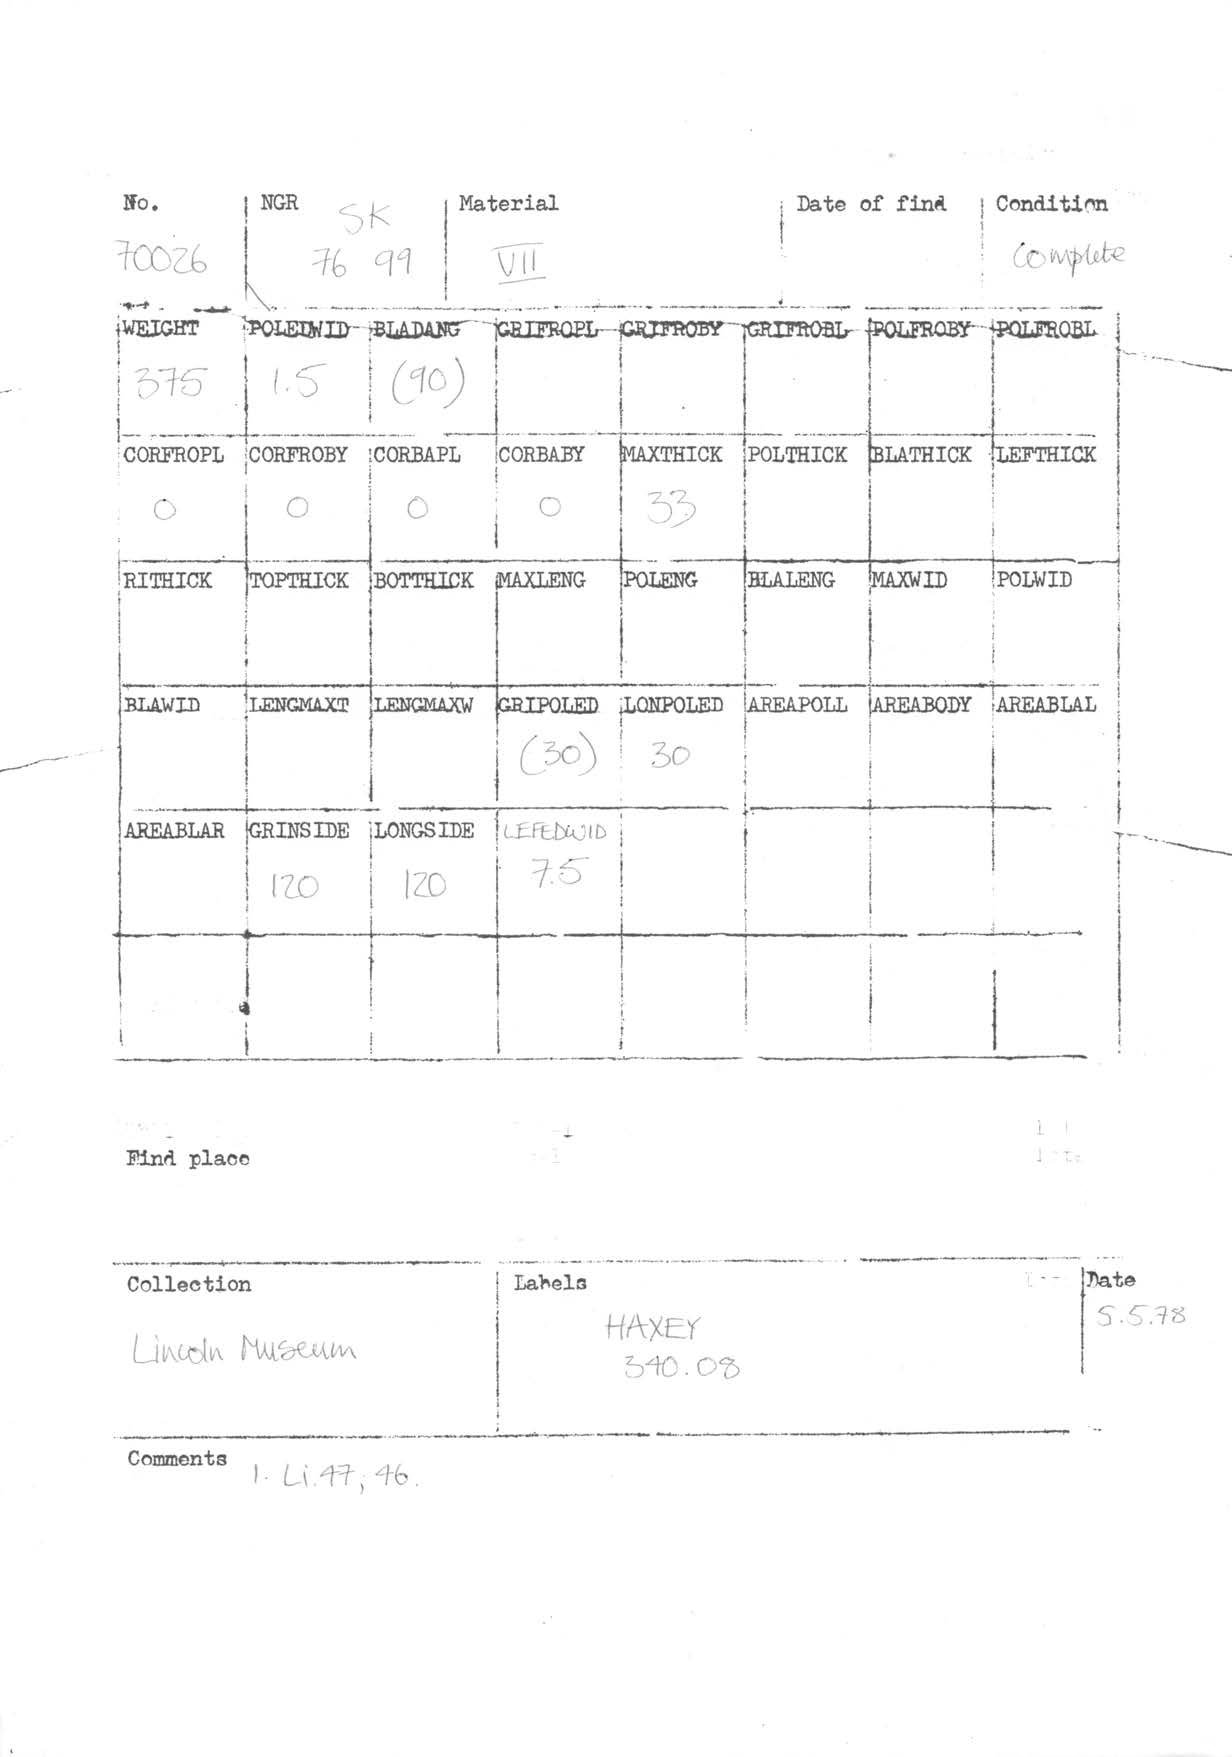 No. NGR Material Date of find Condition
SK
70026 76 99 VII Complete
WEIGHT POLEDWID BLADANG GRIFROPL GRIFROBY GRIFROBL POLFROBY POLFROBL
375 1.5 (90)
CORFROPL CORFROBY CORBAPL CORBABY MAXTHICK POLTHICK BLATHICK LEFTHICK
0 0 0 0 33
RITHICK TOPTHICK BOTTHICK MAXLENG POLENG BLALENG MAXWID POLWID
BLAWID LENGMAXT LENGMAXW GRIPOLED LONPOLED AREAPOLL AREABODY AREABLAL
(30) 30
AREABLAR GRINSIDE LONGSIDE LEFEDWID
120 120 7.5
Find place
Collection Labels Date
Lincoln Museum HAXEY 5.5.78
340.08
Comments 1. Li.47, 46.